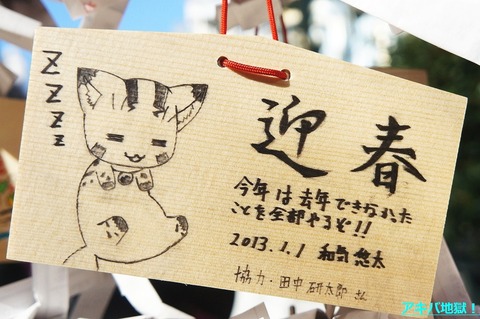 Z
Z
Z
Z
迎春
今年は去年できなかった
ことを全部やるぞ!!
2013.1.1 和気悠太
協力・田中研太郎
アキバ地獄！